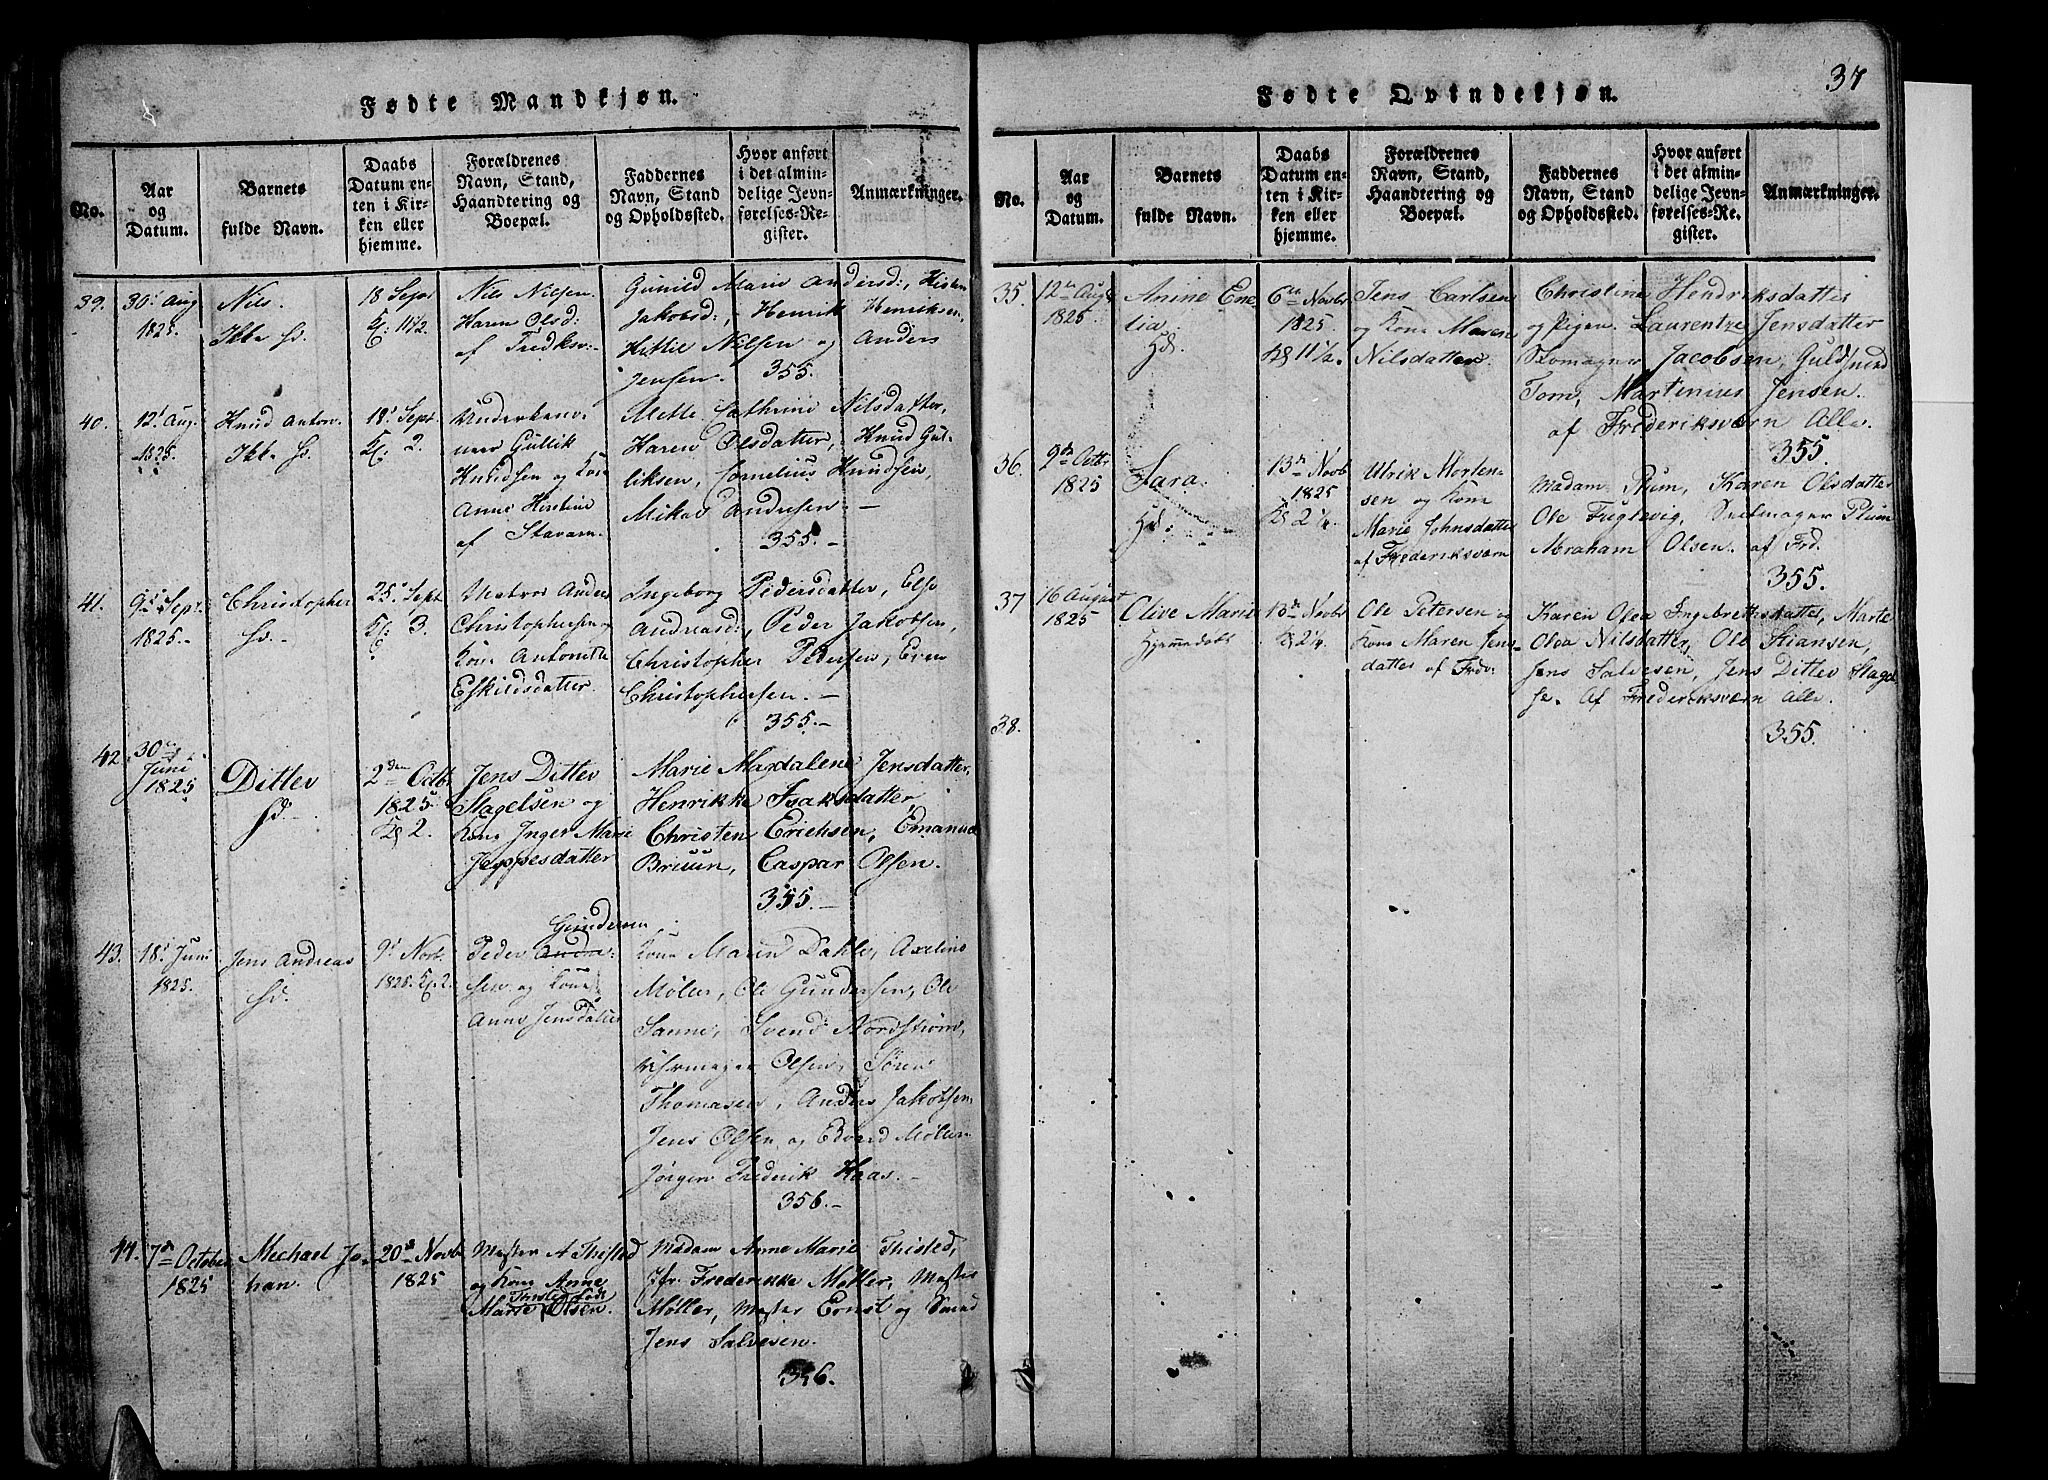 Fødte Mandkjøn.
No.
Aar
og
Datum.
Barnets
fulde Navn.
Daabs
Datum en-
ten i Kir-
ken eller
hjemme.
Forældrenes
Navn, Stand,
Haandtering og
Boepæl.
Faddernes
Navn, Stand
og Opholdssted.
Hvor anført
i det almin-
delige Jevn-
førelses-Re-
gister.
Anmærkninger.
39.
30' Aug
1825.
Nils.
18 Sept
Kl: 11 1/2
Nils Nilsen.
Karen Olsd:
af Fredksv:
Gunild Marie Andersd:, Kisten
Jakobsd:, Henrik Henriksen,
Kittil Nilsen og Anders
Jensen. 355.
40.
12' Aug.
1825.
Knud Anton.
18' Sept.
Kl: 2.
Gullik
Knudsen og Kone
Anne Kirstine
af Staværn.
Mette Cathrine Nilsdatter,
Karen Olsdatter, Knud Gul-
liksen, Cornelius Knudsen,
Mikal Andersen.
355.
41.
9' Sept.
1825.
Christopher
25' Sept
Kl: 3.
Matros Anders
Christophersen og
Kone Antonette
Eskildsdatter.
Ingeborg Pedersdatter, Else
Andreasd:, Peder Jakobsen,
Christopher Pedersen, Even
Christophersen.
355.
42.
30
Juni
1825
Ditlev
2den Octb
1825.
Kl 2.
Jens Ditlev
Slagelsen og
Kone Inger Marie
Jeppesdatter
Marie Magdalene Jensdatter,
Henrikke Isaksdatter
Christen Erichsen, Emanuel
Bruun, Caspar Olsen.
355.
43.
18' Juni
1825.
Jens Andreas
9' Novb.
1825. Kl. 2.
Gundersen
Peder Andre:
sen og Kone
Anne Jensdatter
Kone Maren Dahle, Axeline
Møller, Ole Gundersen, Ole
Sanne, Svend Nordstrøm,
Olsen, Søren
Thomasen, Anders Jakobsen
Jens Olsen og Edvard Møller
Jørgen Frederik Haas.
356.
44.
7de October
1825
Mechael Jo-
han.
20de Novb
1825
Mester A Thisted
og Kone Anne
Thisted født
Marie Olsen.
Madam Anne Marie Thisted,
Jfr. Frederikke Møller, Mester
Møller, Mester Ernst og Smed
Jens Salvesen.
356.
37
Fødte Qvindekjøn.
No.
Aar
og
Datum.
Barnets
fulde Navn.
Daabs
Datum en-
ten i Kir-
ken eller
hjemme.
Forældrenes
Navn, Stand,
Haandtering og
Boepæl.
Faddernes
Navn, Stand
og Opholdssted.
Hvor anført
i det almin-
delige Jevn-
førelses-Re-
gister.
Anmærkninger.
35.
12te Aug
1825.
Anine Eme-
lia.
Hd.
6te Novbr
1825.
Kl 11 1/2.
Jens Carlsen
og Kone Maren
Nilsdatter.
Christine Hendriksdatter
og Pigen Laurentze Jensdatter
Skomager Jacobsen, Guldsmed
Tom, Martinius Jensen.
af Frederiksværn Alle.
355.
36.
9de Octb
1825
Sara.
Hd.
13de Novb
1825
Kl 2 1/2.
Ulrik Morten-
sen og Kone
Marie Johnsdatter
af Frederiksværn
Madam Plum, Karen Olsdatter
Ole Fuglevig, Seilmager Plum
Abraham Olsen. af Frd.
355.
37
16 August
1825
Olive Marie
Hjemmedøbt
13de Novbr
Kl 2 1/2.
Ole Petersen og
Kone Maren Jens-
datter af Frdv.
Karen Olea Ingebretsdatter, Marte
Olea Nilsdatter, Ole Hansen,
Jens Salvesen, Jens Ditlev Slagel
se. Af Frederiksværn Alle.
355.
38.